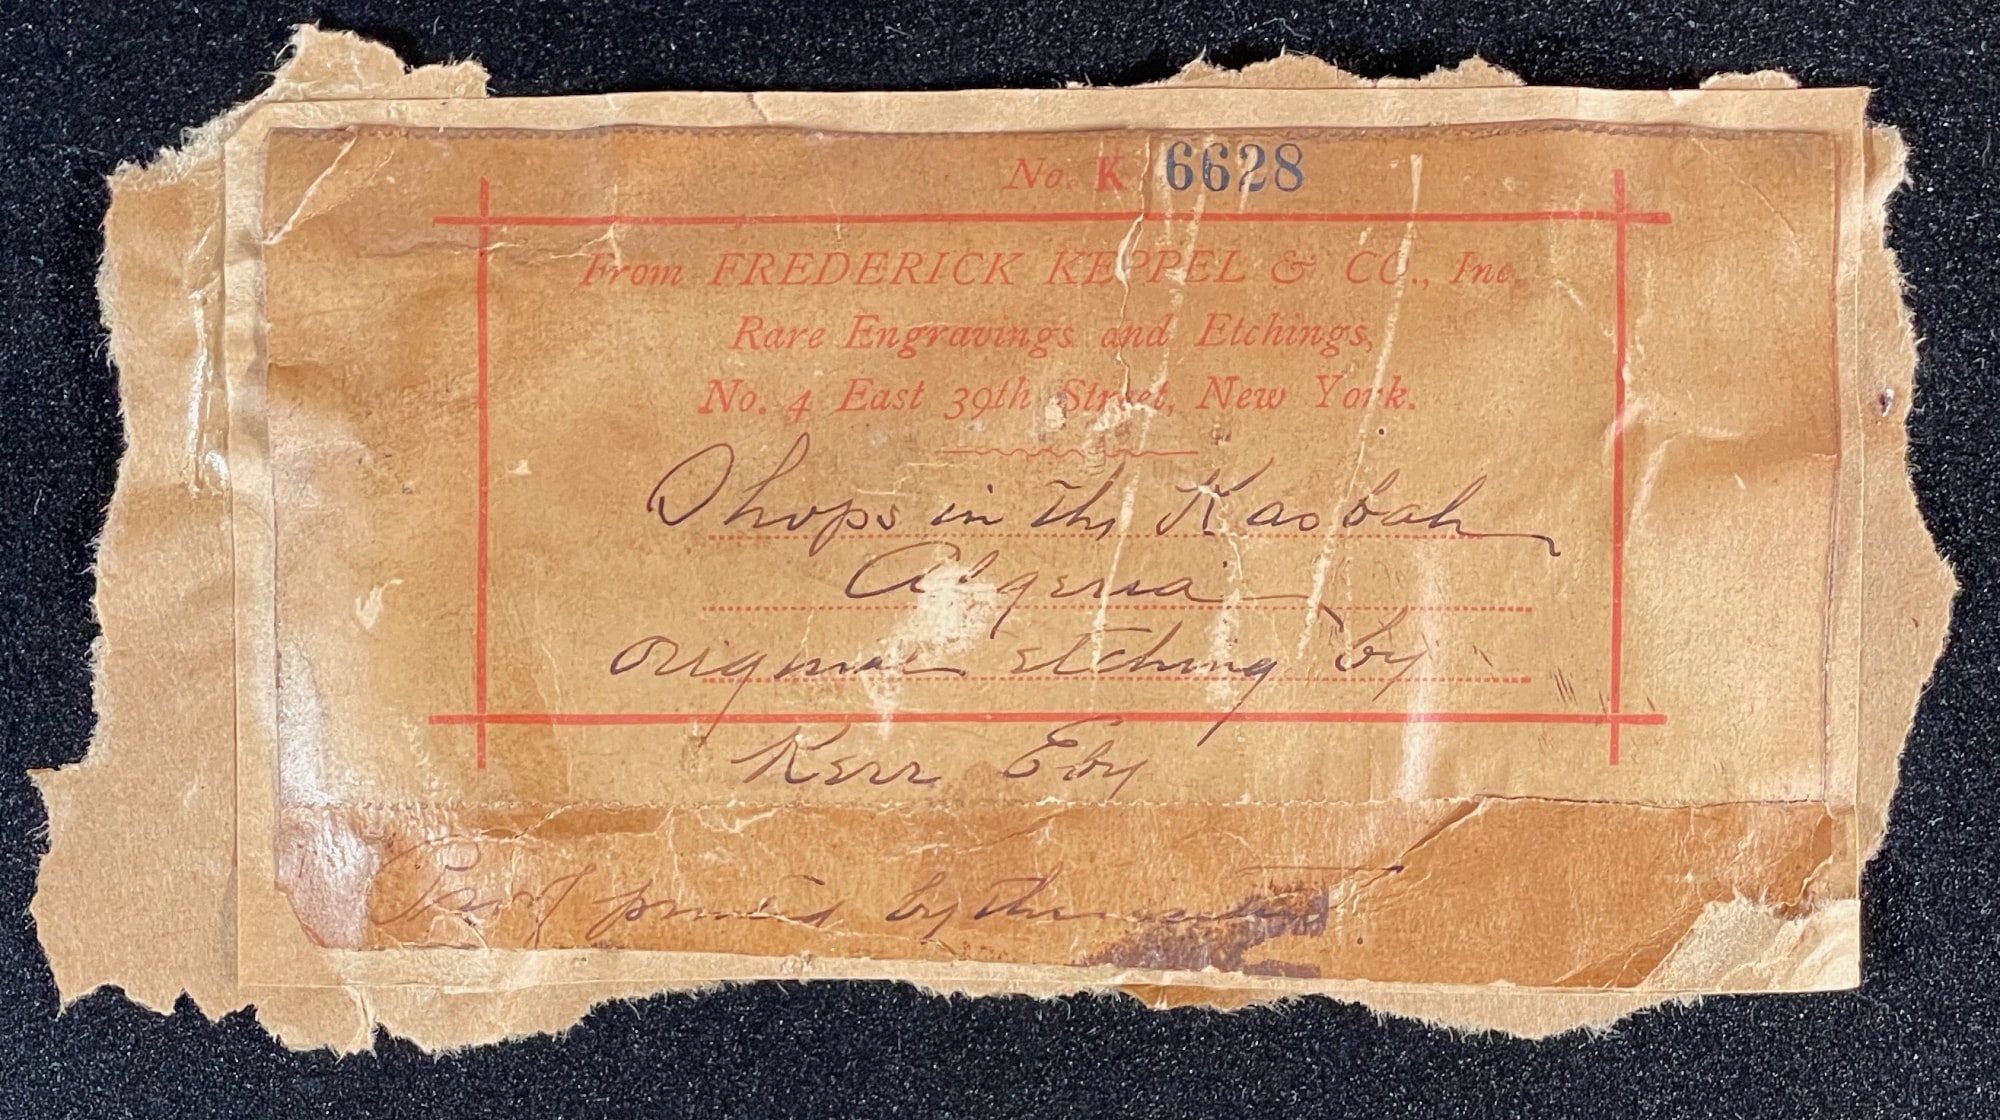 No. K 6628
From FREDERICK KEPPEL & CO., Inc.
Rare Engravings and Etchings,
No. 4 East 39th Street, New York.
Shops in the Kasbah
Algeria
original etching by
Kerr Eby
Proof printed by the artist